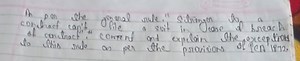 As per the general rule, "Stranger to a
contract can't file a suit in case of breach
of contract". Comment and explain the exceptions
to this rule as per the provisions of 1872.